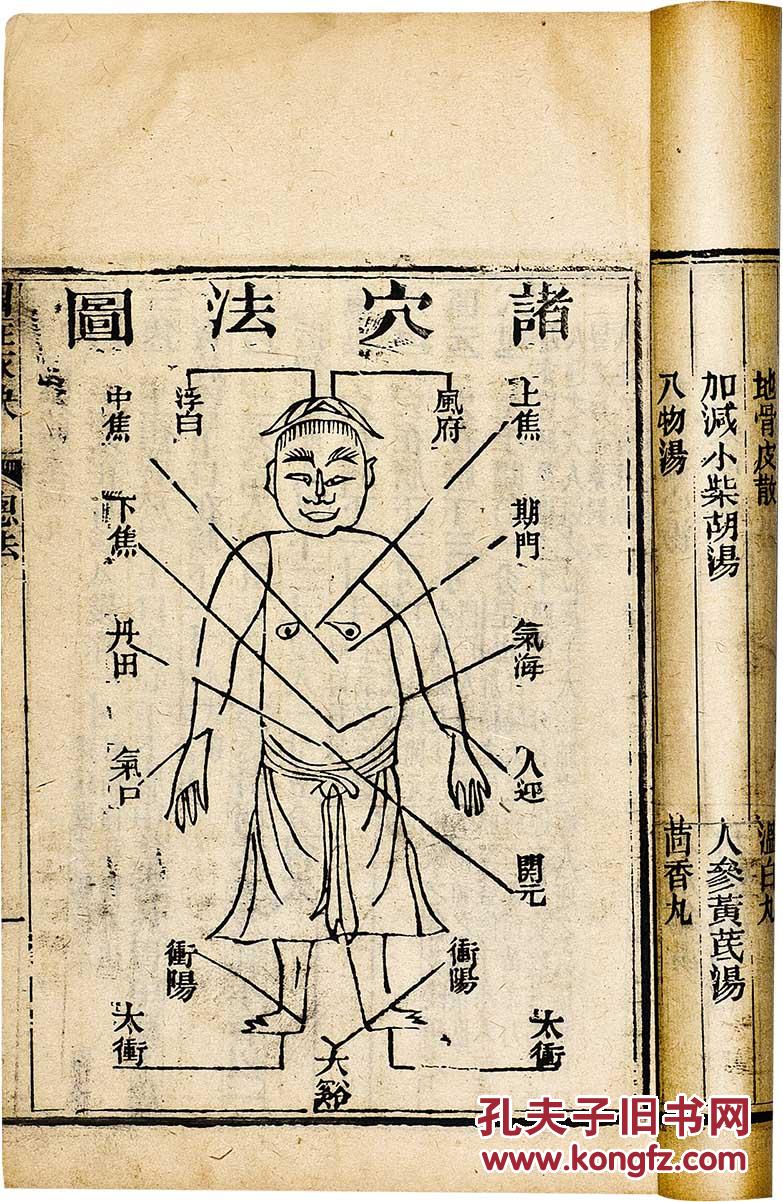 地骨皮散
加減小柴胡湯
人參黃芪湯
八物湯
茴香丸
諸穴法圖
上焦
期門
氣海
人迎
關元
風府
浮白
中焦
下焦
丹田
氣口
衝陽
衝陽
太衝
太谿
太衝
總法
孔夫子旧书网
www.kongfz.com